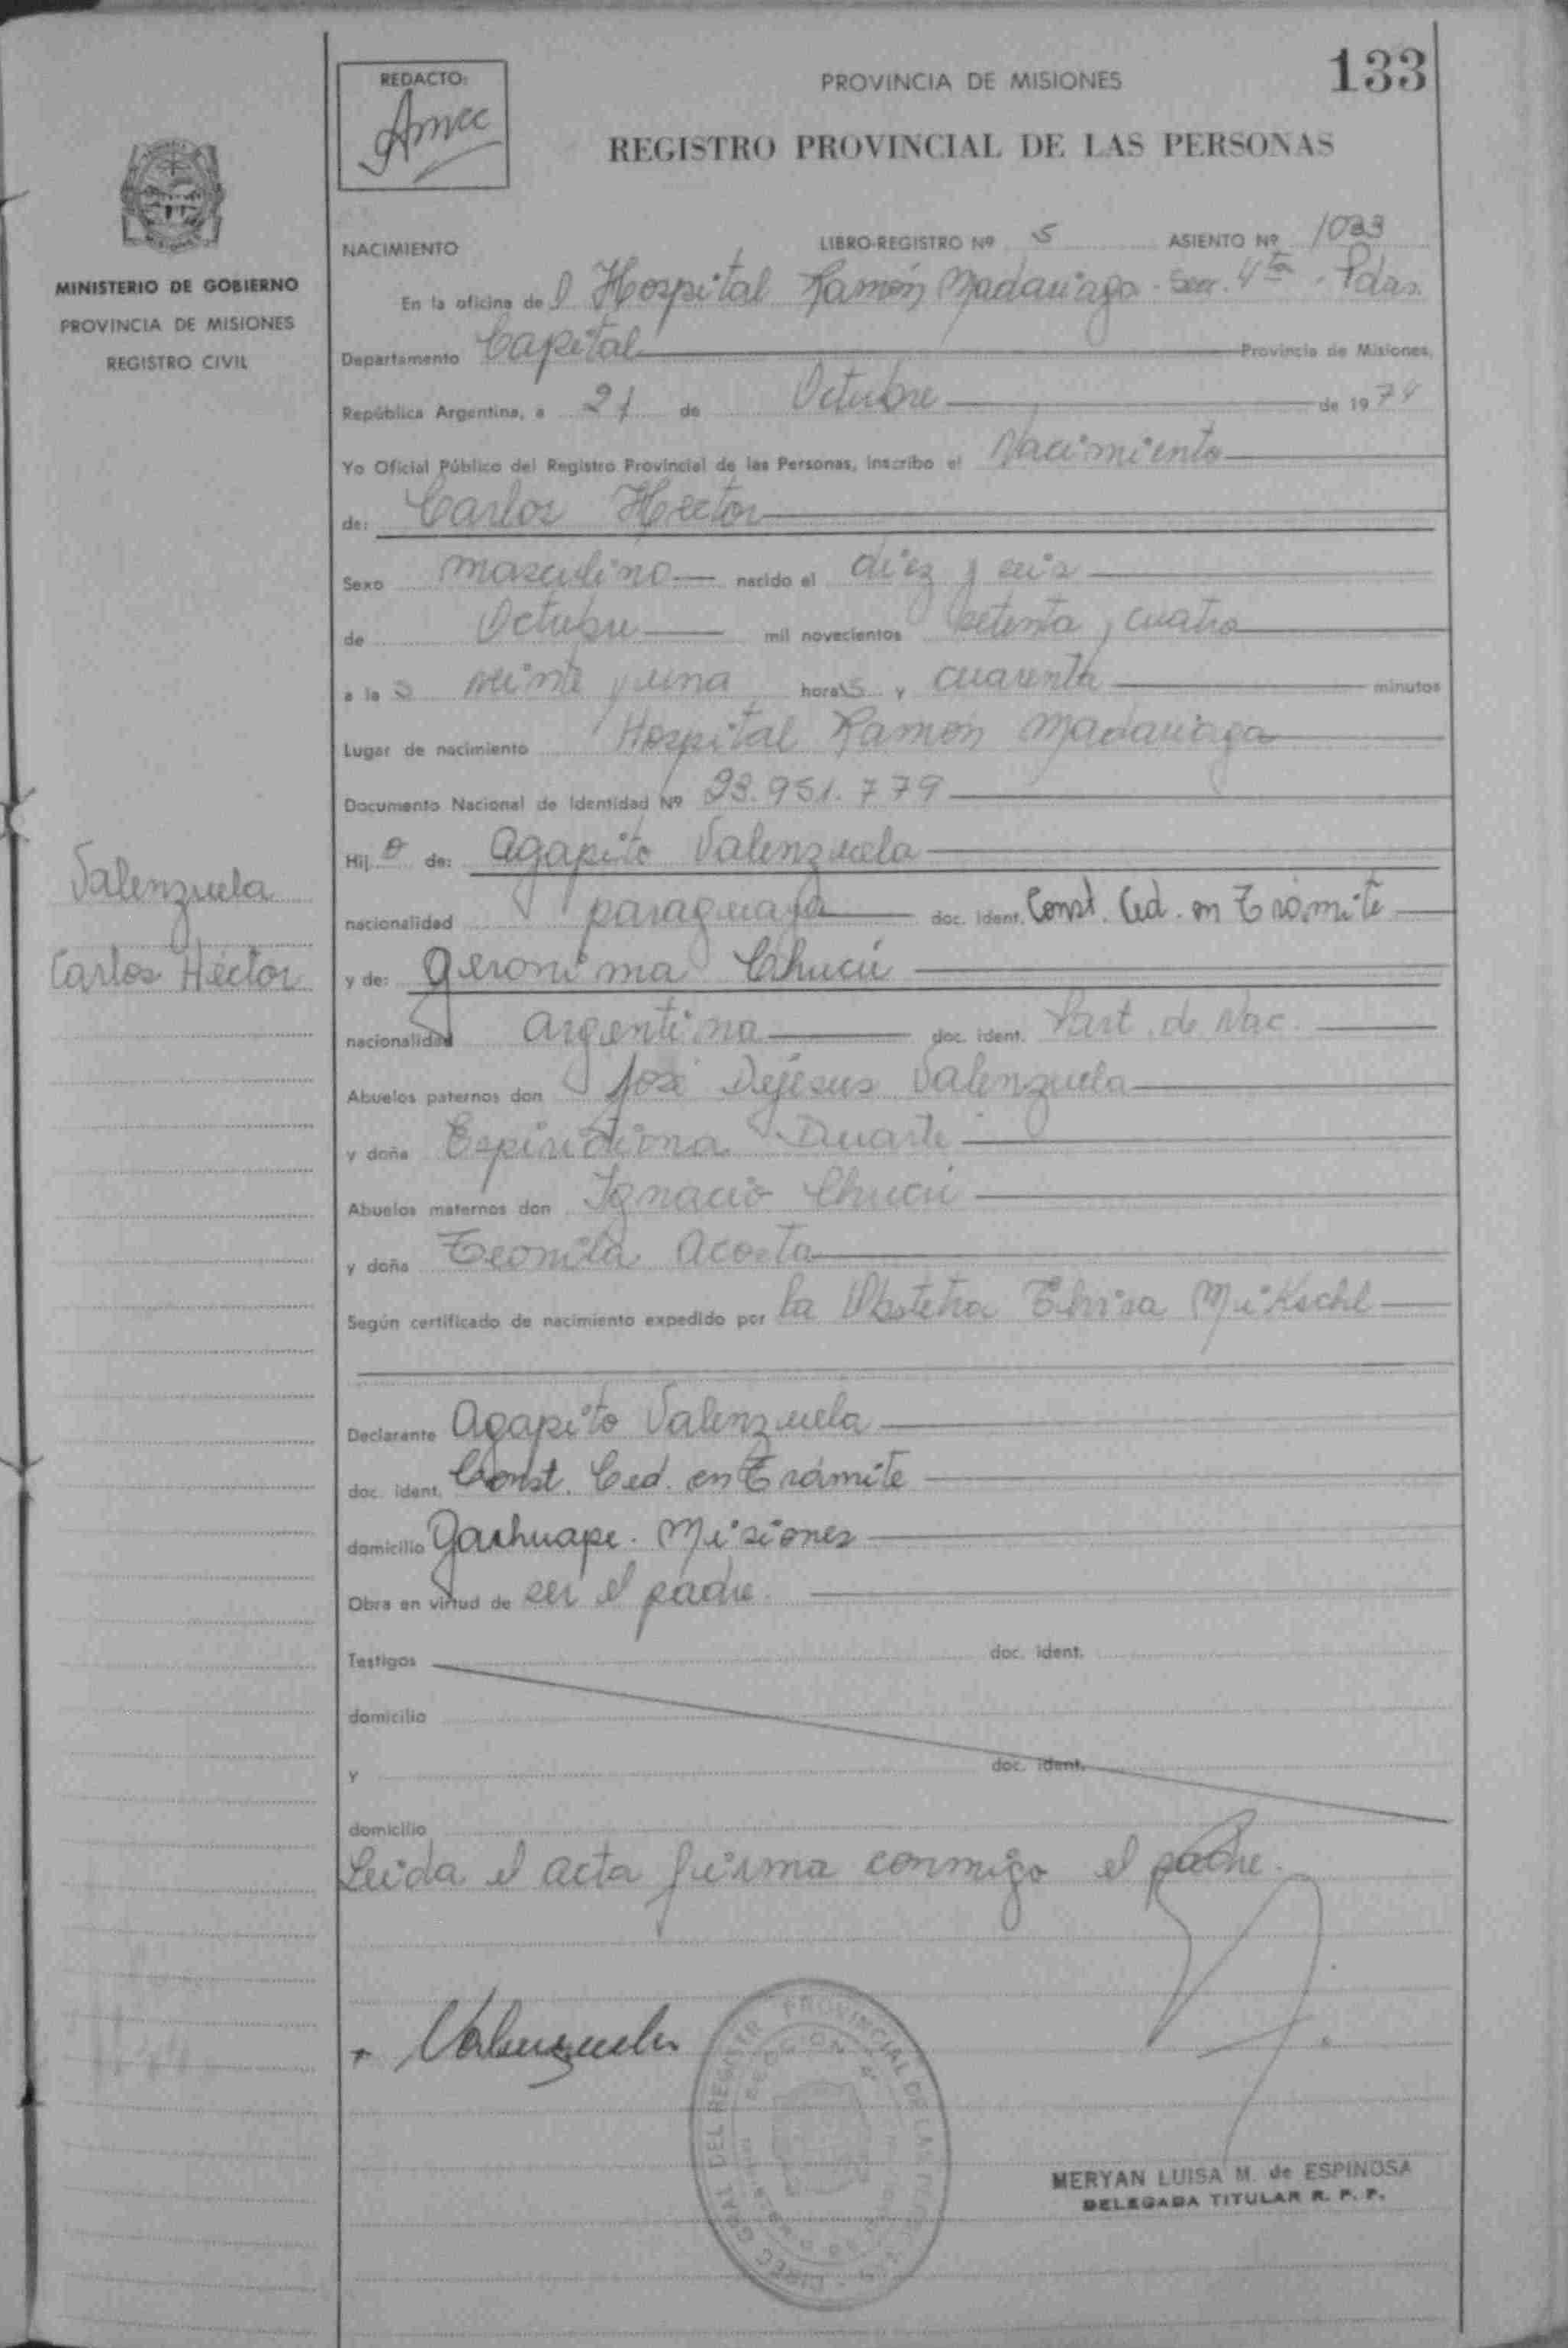 133
REDACTO:
PROVINCIA DE MISIONES
REGISTRO PROVINCIAL DE LAS PERSONAS
MINISTERIO DE GOBIERNO
PROVINCIA DE MISIONES
REGISTRO CIVIL
NACIMIENTO LIBRO-REGISTRO Nº 5 ASIENTO Nº 1033
En la oficina del Hospital Ramón Madariaga - Secc. 4ta - Pdas.
Departamento Capital Provincia de Misiones,
República Argentina, a 21 de Octubre de 1974
Yo Oficial Público del Registro Provincial de las Personas, inscribo el Nacimiento
de: Carlos Hector
Sexo masculino nacido el diez y seis
de Octubre mil novecientos setenta y cuatro
a las veinte y una horas y cuarenta minutos
Lugar de nacimiento Hospital Ramón Madariaga
Documento Nacional de Identidad Nº 23.951.779
Hijo de: Agapito Valenzuela
nacionalidad paraguaya doc. ident. Const. Ced. en Trámite
y de: Geronima Chucú
nacionalidad Argentina doc. ident. Part. de Nac.
Abuelos paternos don José Dejesus Valenzuela
y doña Espiridiona Duarte
Abuelos maternos don Ignacio Chucú
y doña Teonila Acosta
Según certificado de nacimiento expedido por la Obstetra Elvisa Mikschl
Declarante Agapito Valenzuela
doc. ident. Const. Ced. en Trámite
domicilio Garhuape. Misiones
Obra en virtud de ser el padre.
Testigos doc. ident.
domicilio
y doc. ident.
domicilio
Leida el acta firma conmigo el padre.
Valenzuela
Carlos Héctor
Valenzuela
MERYAN LUISA M. de ESPINOSA
DELEGADA TITULAR R. P. P.